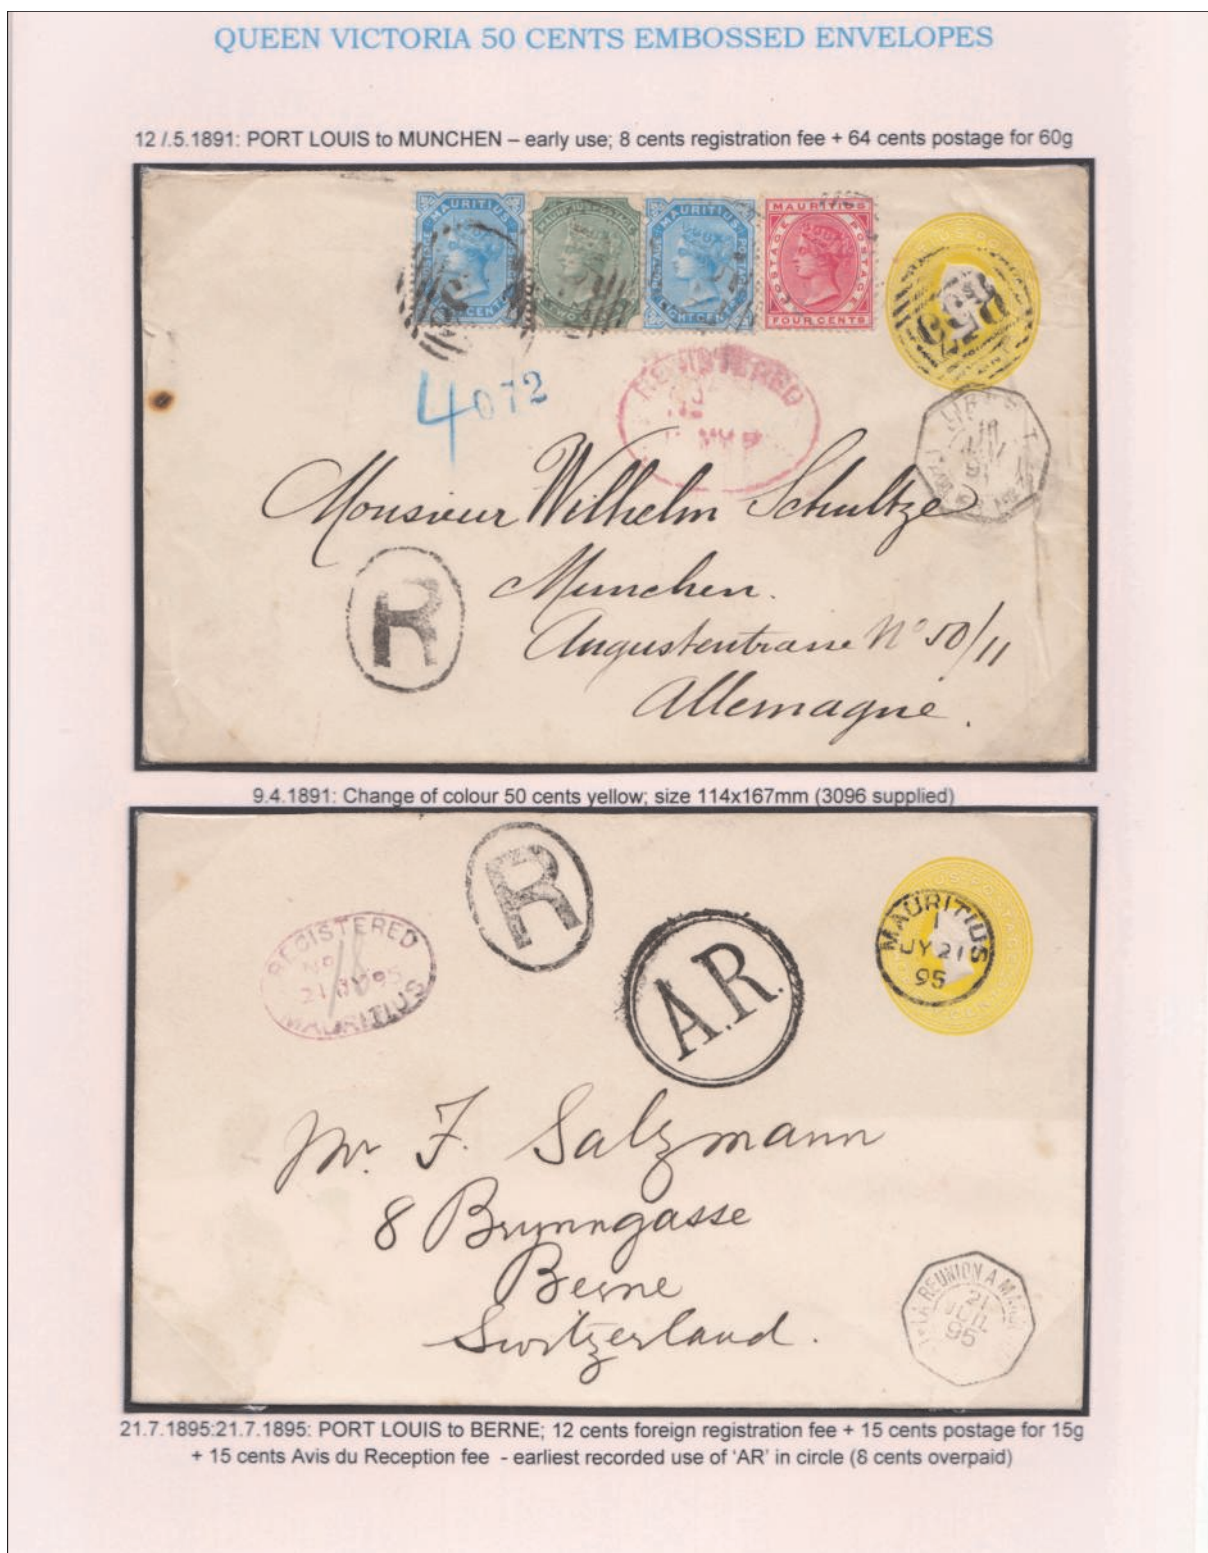 QUEEN VICTORIA 50 CENTS EMBOSSED ENVELOPES
12 /.5.1891: PORT LOUIS to MUNCHEN – early use; 8 cents registration fee + 64 cents postage for 60g
MAURITIUS MAURITIUS MAURITIUS
POSTAGE POSTAGE
EIGHT CENTS FOUR CENTS
B53
4072
REGISTERED
Monsieur Wilhelm Schultze
R
Munchen.
Augustentrasse No 50/11
Allemagne.
9.4.1891: Change of colour 50 cents yellow; size 114x167mm (3096 supplied)
R
MAURITIUS
1
JY 21
95
REGISTERED
No 18
21 JY 95
MAURITIUS
A.R.
Mr. F. Salzmann
8 Brunngasse
Berne
Switzerland.
LA REUNION A
21
JUIL
95
21.7.1895:21.7.1895: PORT LOUIS to BERNE; 12 cents foreign registration fee + 15 cents postage for 15g
+ 15 cents Avis du Reception fee - earliest recorded use of 'AR' in circle (8 cents overpaid)